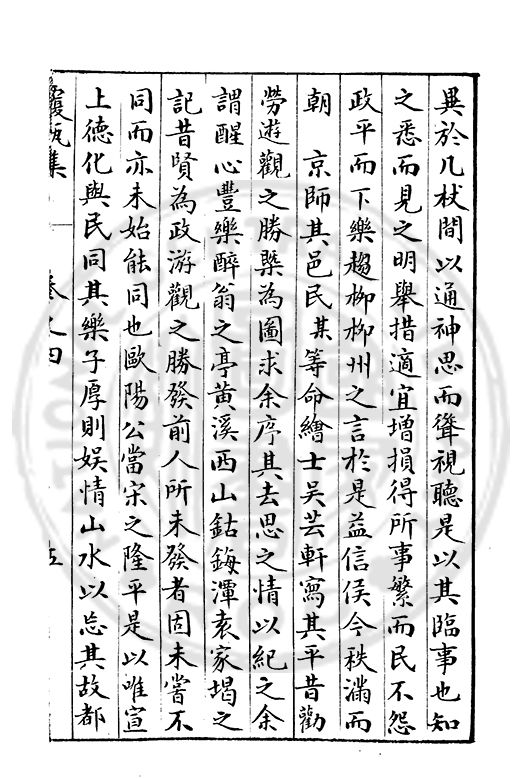 異於几杖間以通神思而聳視聽是以其臨事也知
之悉而見之明舉措適宜增損得所事繁而民不怨
政平而下樂趨柳柳州之言於是益信侯今秩滿而
朝　京師其邑民某等命繪士吳芸軒寫其平昔勸
勞遊觀之勝槩為圖求余序其去思之情以紀之余
謂醒心豐樂醉翁之亭黃溪西山鈷鉧潭袁家堨之
記昔賢為政游觀之勝發前人所未發者固未嘗不
同而亦未始能同也歐陽公當宋之隆平是以唯宣
上德化與民同其樂子厚則娛情山水以忘其故都
覆瓿集　卷之四　五